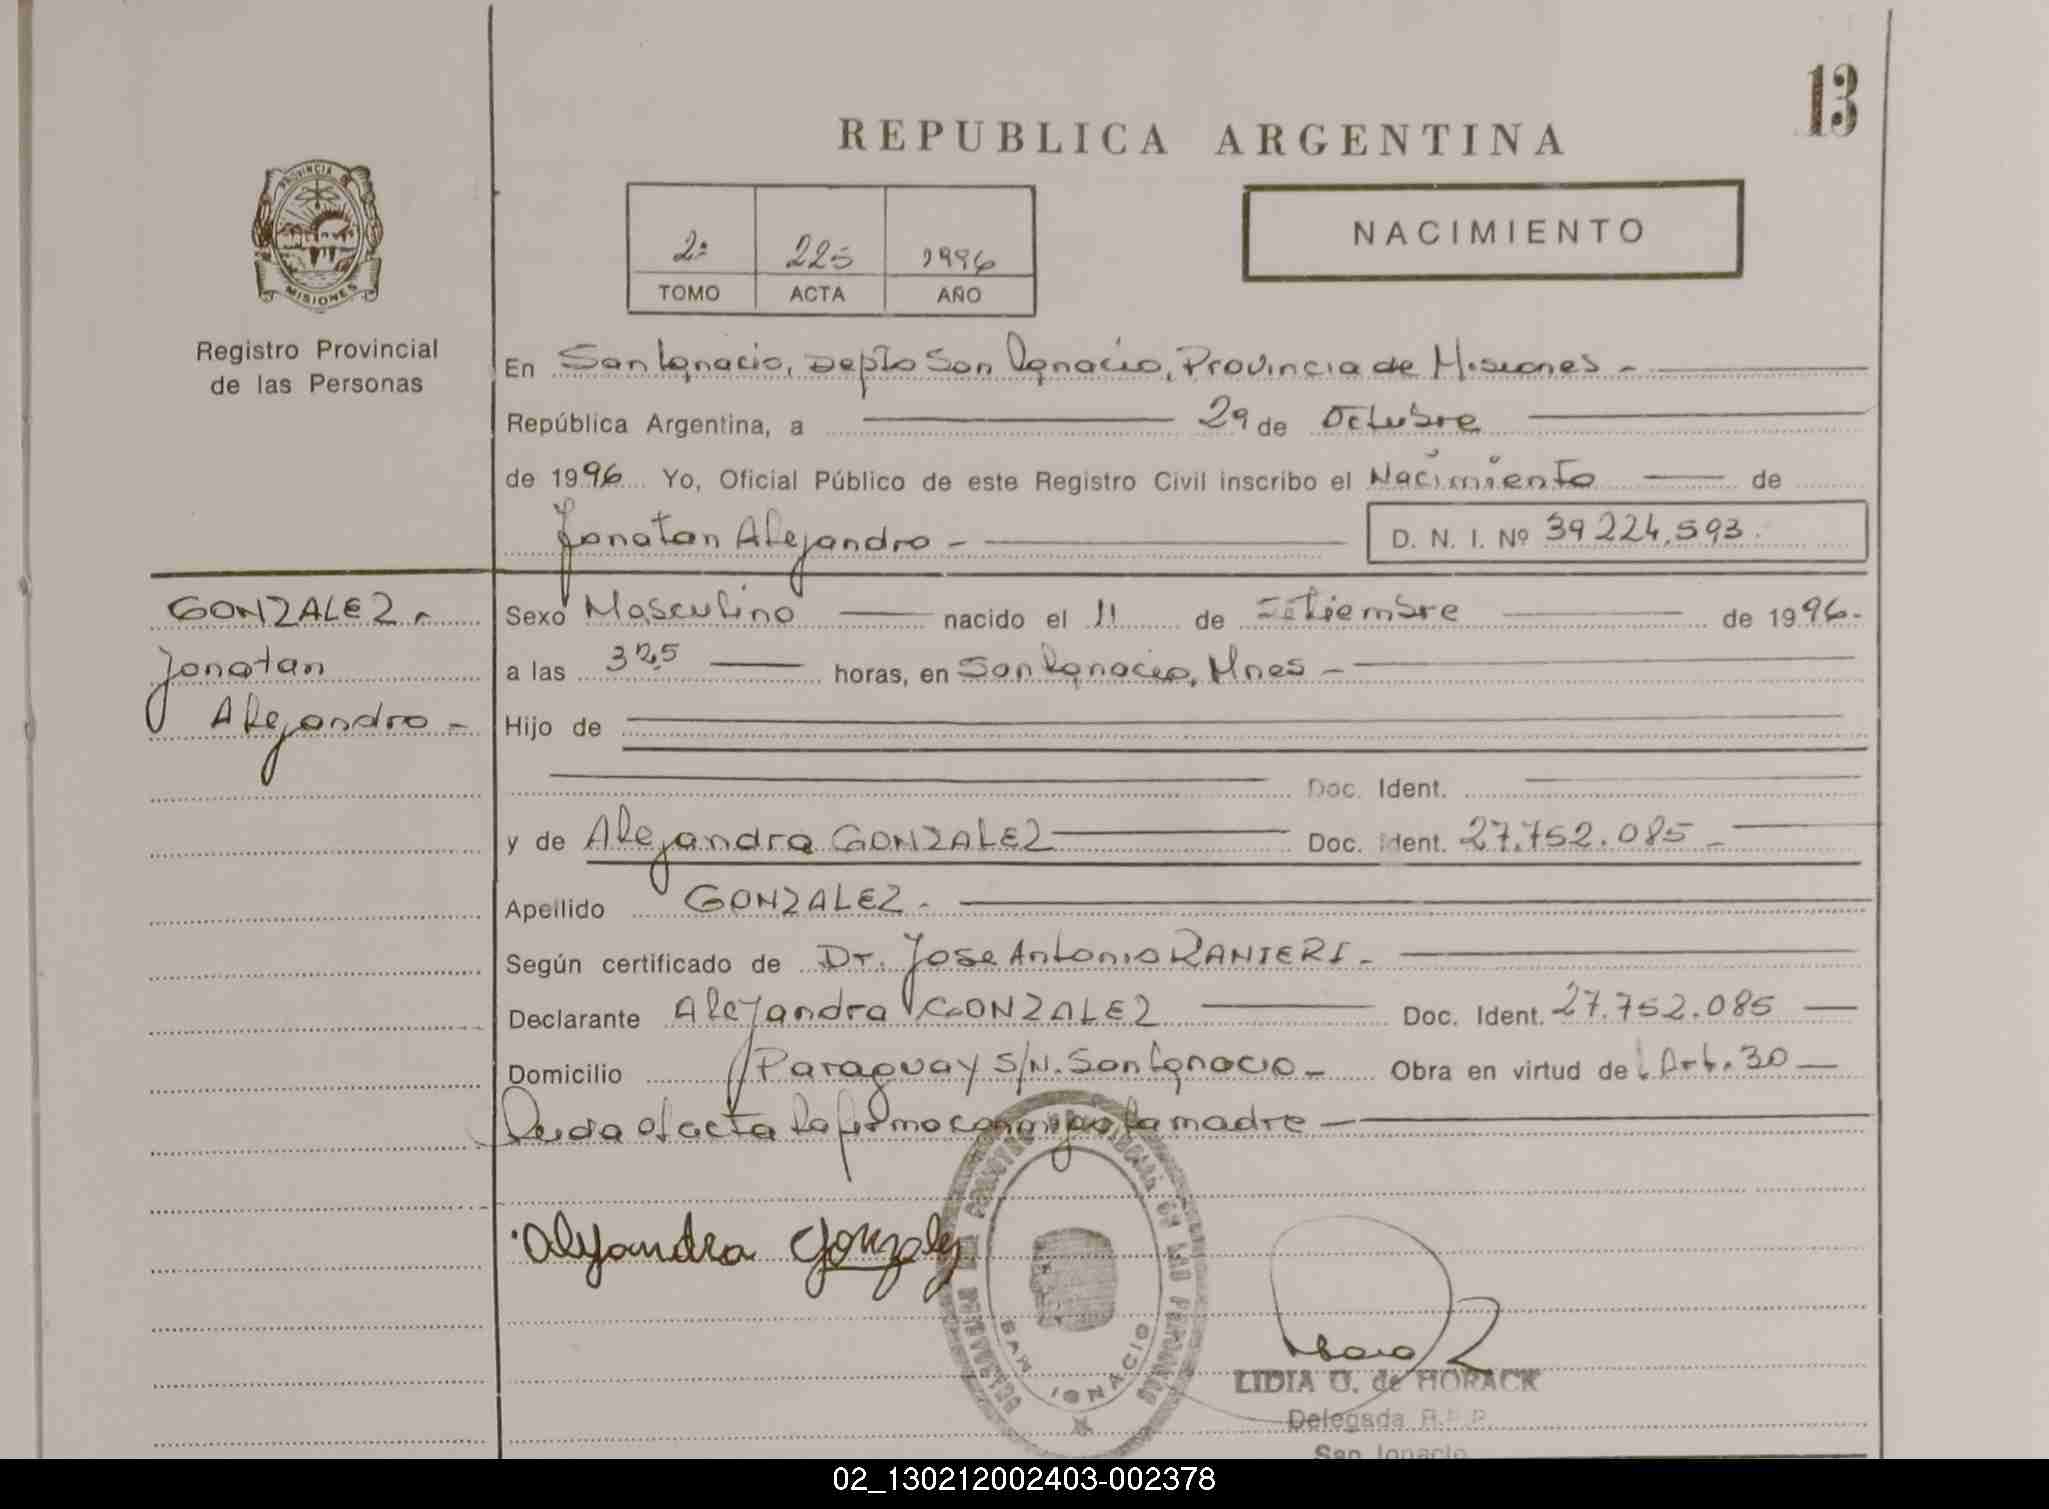 13
REPUBLICA ARGENTINA
PROVINCIA DE
MISIONES
2º 225 1996
TOMO ACTA AÑO
NACIMIENTO
Registro Provincial
de las Personas
En San Ignacio, Depto San Ignacio, Provincia de Misiones -
República Argentina, a 29 de Octubre
de 1996 Yo, Oficial Público de este Registro Civil inscribo el Nacimiento de
Jonatan Alejandro - D. N. I. Nº 39 224.593.
GONZALEZ -
Jonatan
Alejandro -
Sexo Masculino nacido el 11 de Setiembre de 1996-
a las 3 horas, en San Ignacio, Mnes -
Hijo de
Doc. Ident.
y de Alejandra GONZALEZ Doc. Ident. 27.752.085 -
Apellido GONZALEZ -
Según certificado de Dr. Jose Antonio RANIERI -
Declarante Alejandra GONZALEZ Doc. Ident. 27.752.085
Domicilio Paraguay S/N. San Ignacio - Obra en virtud del Art. 30
Leida el acta la firma conmigo la madre
Alejandra Gonzalez
SAN IGNACIO
LIDIA U. de HORACK
Delegada R.P.P.
San Ignacio
02_130212002403-002378